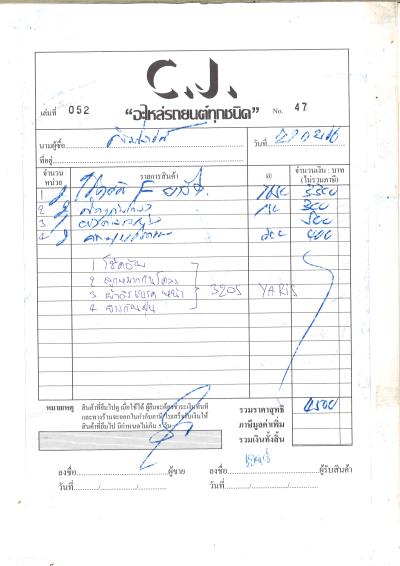 C.J.
"อะไหล่รถยนต์ทุกชนิด"
เล่มที่ 052
No. 47
นามผู้ซื้อ
วันที่
ที่อยู่
จำนวนหน่วย รายการสินค้า @ จำนวนเงิน : บาท (ไม่รวมภาษี)
1 2 โช๊คอัพ F 1650 3300
2 2 150 300
3 1 500
4 2 200 400
1 โช๊คอัพ
2 ลูกหมากกันโคลง
3 ผ้าดิสเบรค หน้า 3205 YARIS
4 ยางกันฝุ่น
หมายเหตุ สินค้าที่ยืมไปดู เมื่อใช้ได้ ผู้ยืมจะต้องชำระเงินทันที
และทางร้านจะออกใบกำกับภาษี/ใบเสร็จรับเงินให้
สินค้าที่ยืมไป มีกำหนดไม่เกิน 5 วัน
รวมราคาสุทธิ 4500
ภาษีมูลค่าเพิ่ม
รวมเงินทั้งสิ้น
ลงชื่อ ผู้ขาย ลงชื่อ ผู้รับสินค้า
วันที่ / / วันที่ / /